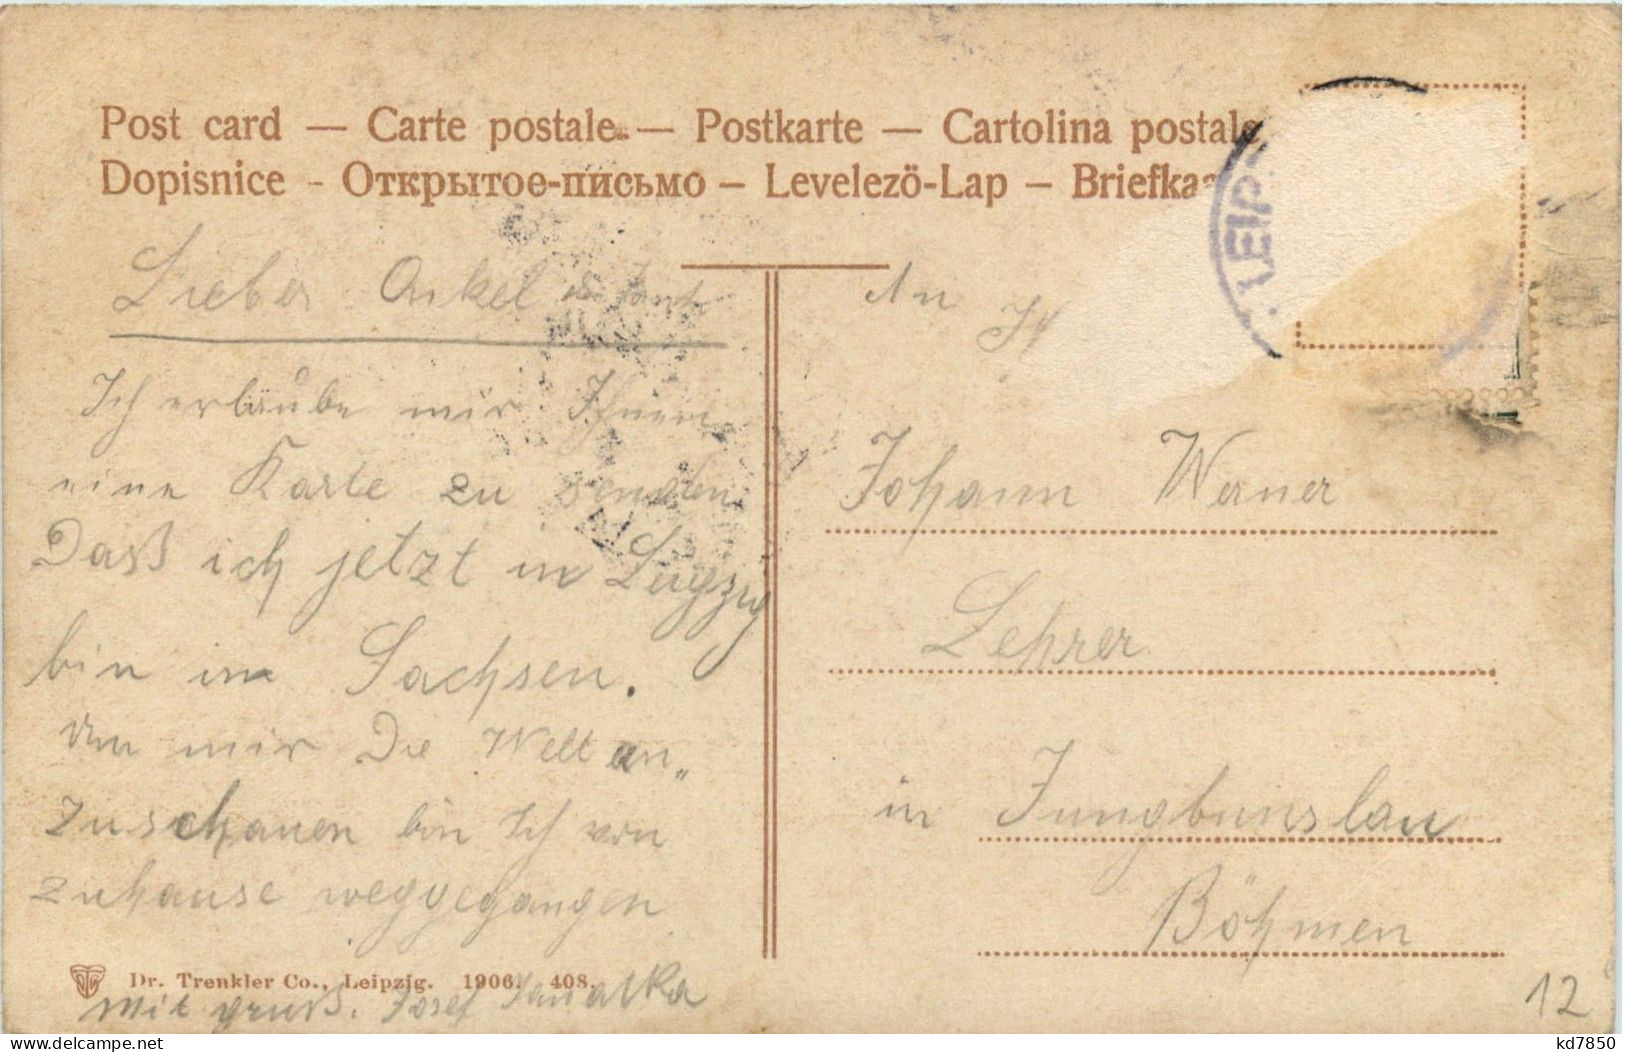 Post card — Carte postale — Postkarte — Cartolina postale
Dopisnice - Открытое-письмо — Levelezö-Lap — Briefkaa
LEIP
Lieber Onkel u Tante
Ich erlaube mir Ihnen
eine Karte zu senden
Daß ich jetzt in Leipzig
bin in Sachsen.
Um mir Die Welt an„
zuschauen bin Ich von
zuhause weggegangen
Dr. Trenkler Co., Leipzig. 1906. 408.
mit gruß. Josef
An
Johann Werner
Lehrer
in Jungbunslau
Böhmen
12
delcampe.net
kd7850